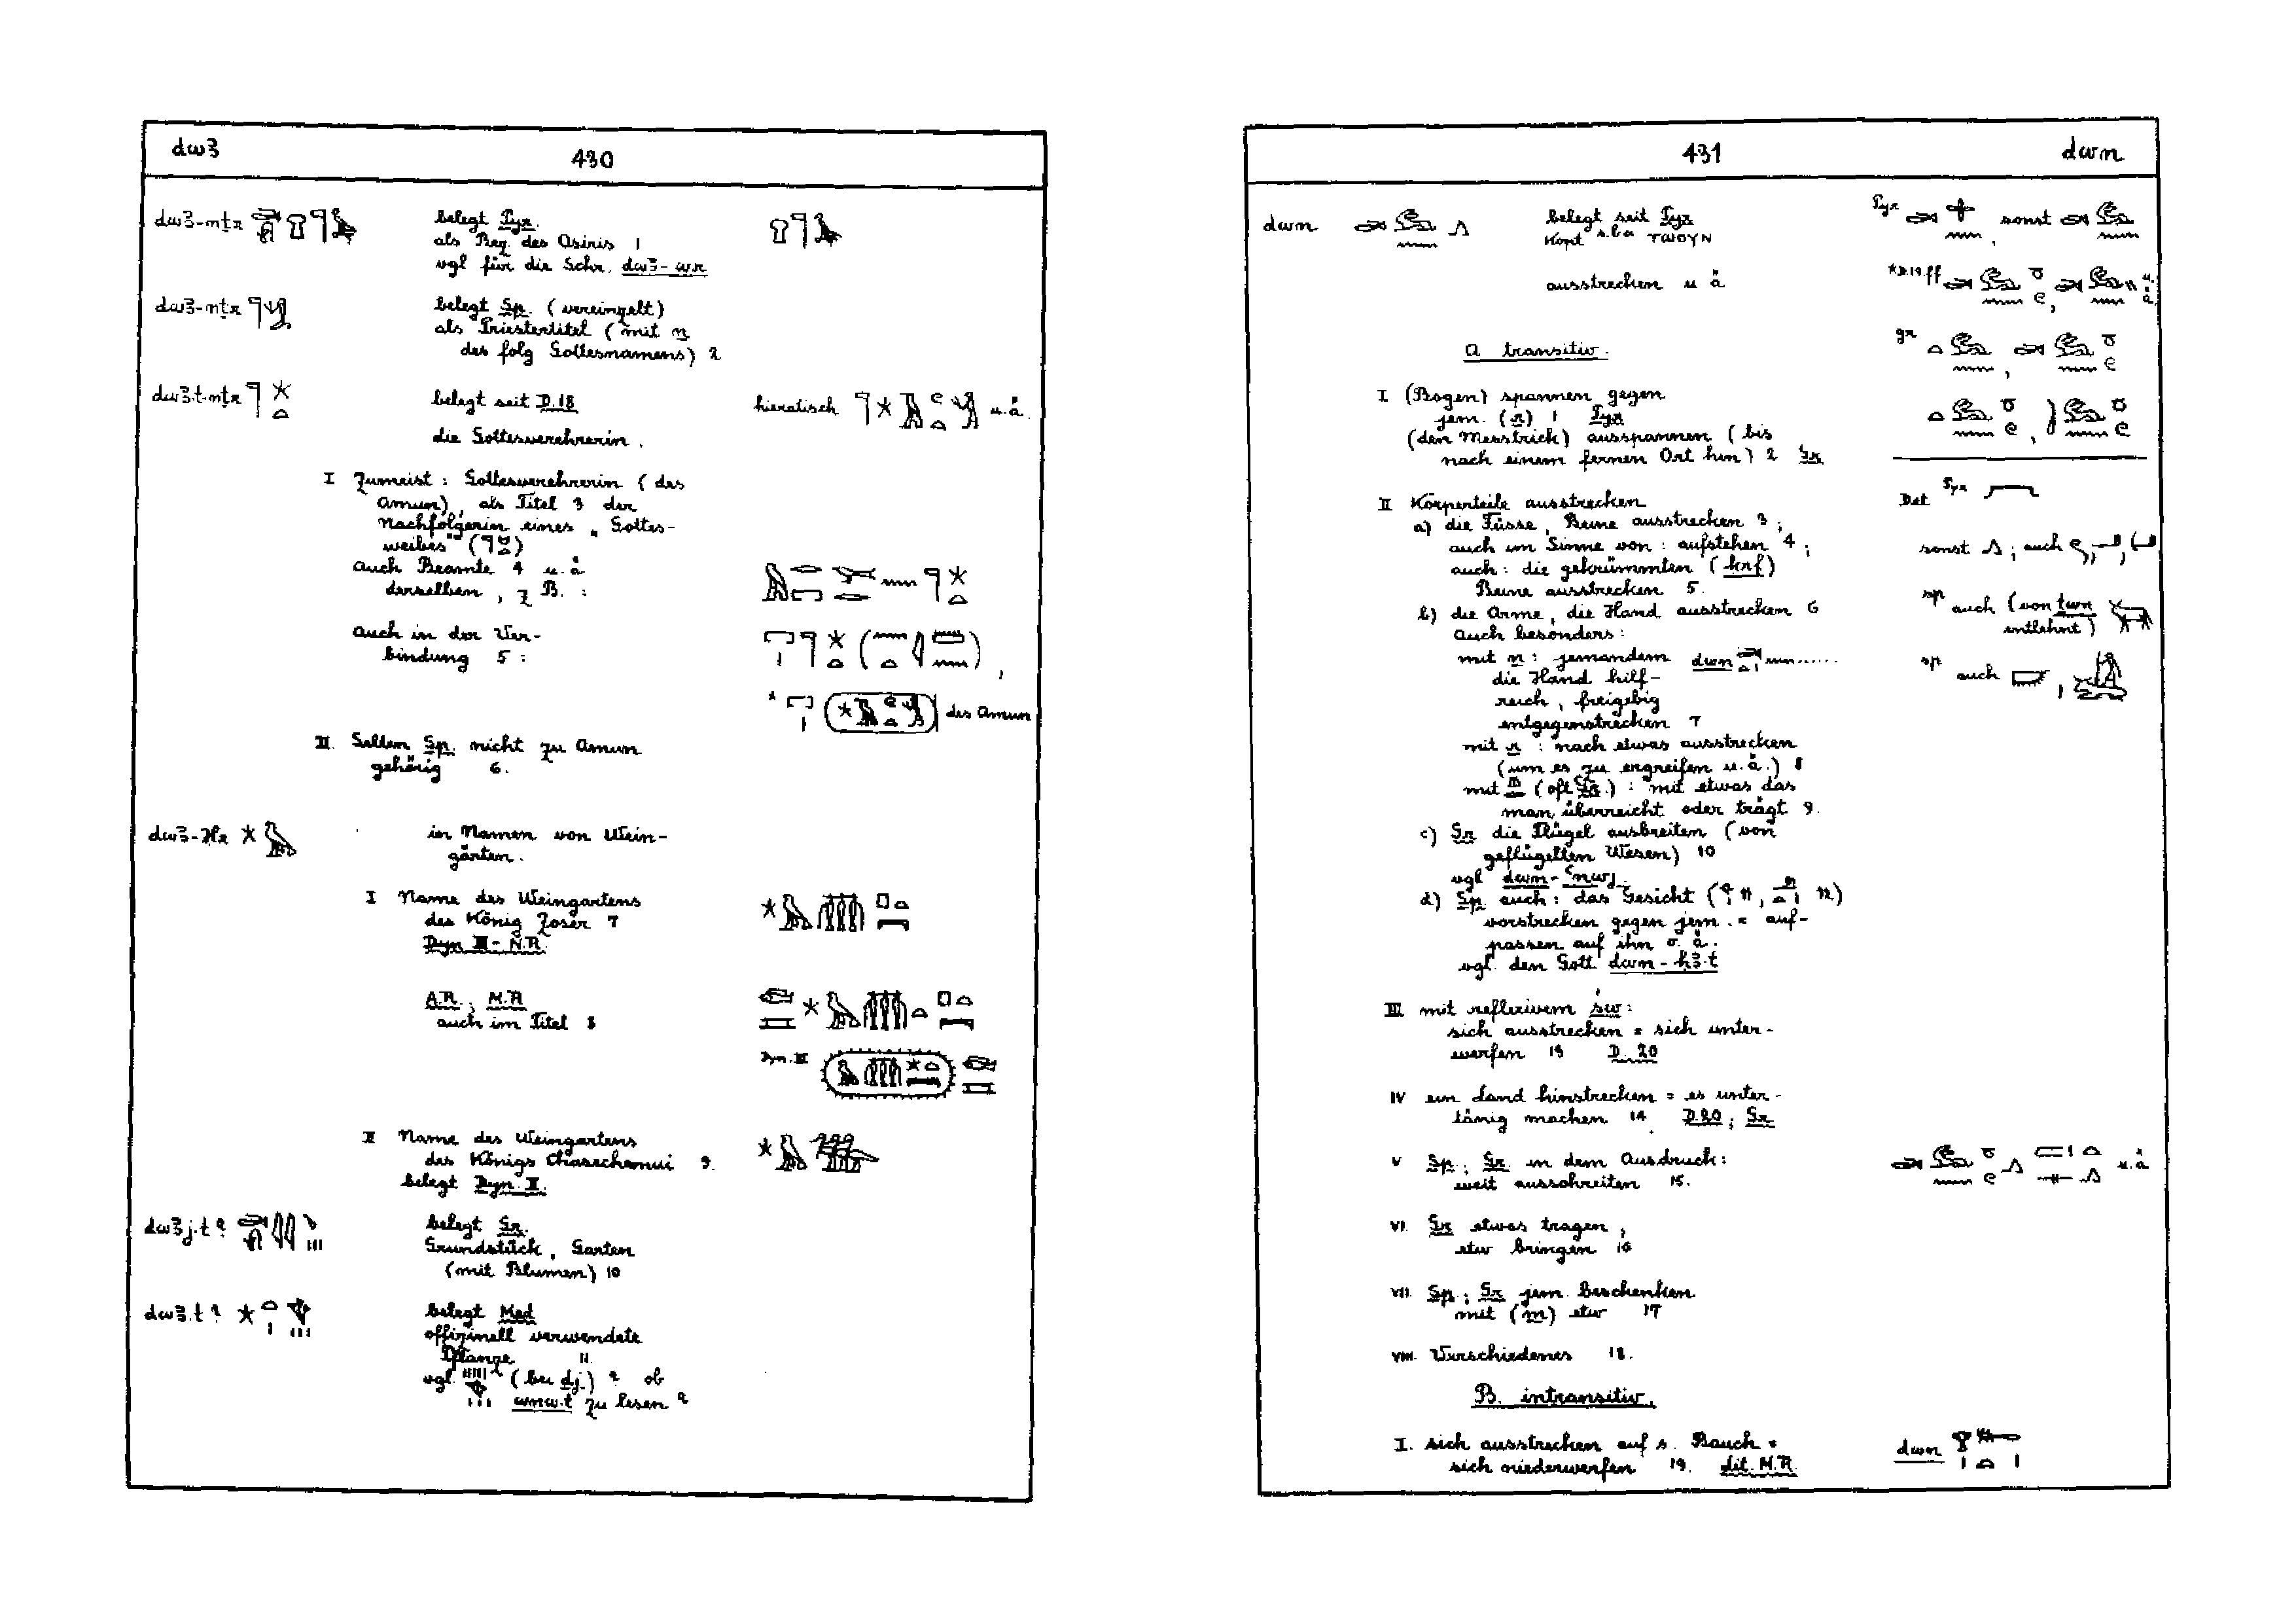 dwꜣ 430
dwꜣ-nṯr belegt Pyr.
als Bez. des Osiris 1
vgl für die Schr. dwꜣ-wr
dwꜣ-nṯr belegt Sp. (vereinzelt)
als Priestertitel (mit n
des folg Gottesnamens) 2
dwꜣ.t-nṯr belegt seit D.18 hieratisch u.ä.
die Gottesverehrerin.
I Zumeist: Gottesverehrerin (des
Amun), als Titel 3 der
Nachfolgerin eines „Gottes-
weibes" ( )
auch Beamte 4 u.ä
derselben, z B.:
auch in der Ver-
bindung 5:
des Amun
II. Selten Sp. nicht zu Amun
gehörig 6.
dwꜣ-Ḥr in Namen von Wein-
gärten.
I Name des Weingartens
des König Zoser 7
Dyn III-N.R.
A.R.; M.R
auch im Titel 8
Dyn. III
II Name des Weingartens
des Königs Chasechemui 9.
belegt Dyn. II.
dwꜣj.t ? belegt Gr.
Grundstück, Garten
(mit Blumen) 10
dwꜣ.t ? belegt Med
offizinell verwendete
Pflanze 11.
vgl (bei dj.) ? ob
wnw.t zu lesen ?
431 dwn
dwn belegt seit Pyr
Kopt s.b.a ⲧⲱⲟⲩⲛ
Pyr , sonst
ausstrecken u ä
*D.19.ff , u. ä
A transitiv.
gr ,
I (Bogen) spannen gegen
jem. (r) 1 Pyr
(den Messtrick) ausspannen (bis
nach einem fernen Ort hin) 2 Gr
II Körperteile ausstrecken
a) die Füsse, Beine ausstrecken 3;
auch im Sinne von: aufstehen 4;
auch: die gekrümmten (ḳrf)
Beine ausstrecken 5.
b) die Arme, die Hand ausstrecken 6
Auch besonders:
mit n: jemandem dwn ......
die Hand hilf-
reich, freigebig
entgegenstrecken 7
mit r: nach etwas ausstrecken
(um es zu ergreifen u.ä.) 8
mit m (oft Gr.): mit etwas das
man überreicht oder trägt 9.
c) Gr die Flügel ausbreiten (von
geflügelten Wesen) 10
vgl dwn-ꜥnwj.
d) Sp auch: das Gesicht ( 11, 12)
vorstrecken gegen jem. = auf-
passen auf ihn o. ä.
vgl. den Gott dwn-ḥꜣ.t
Det Pyr
sonst ; auch , ,
sp auch (von twn
entlehnt)
sp auch ,
III mit reflexivem św:
sich ausstrecken = sich unter-
werfen 13 D. 20
IV ein Land hinstrecken = es unter-
tänig machen 14 D.20; Gr.
V Sp; Gr. in dem Ausdruck: u.ä
weit ausschreiten 15.
VI. Gr etwas tragen,
etw bringen 16
VII. Sp; Gr jem. beschenken
mit (m) etw 17
VIII. Verschiedenes 18.
B. intransitiv.
I. sich ausstrecken auf s. Bauch = dwn
sich niederwerfen 19. Lit. M.R.